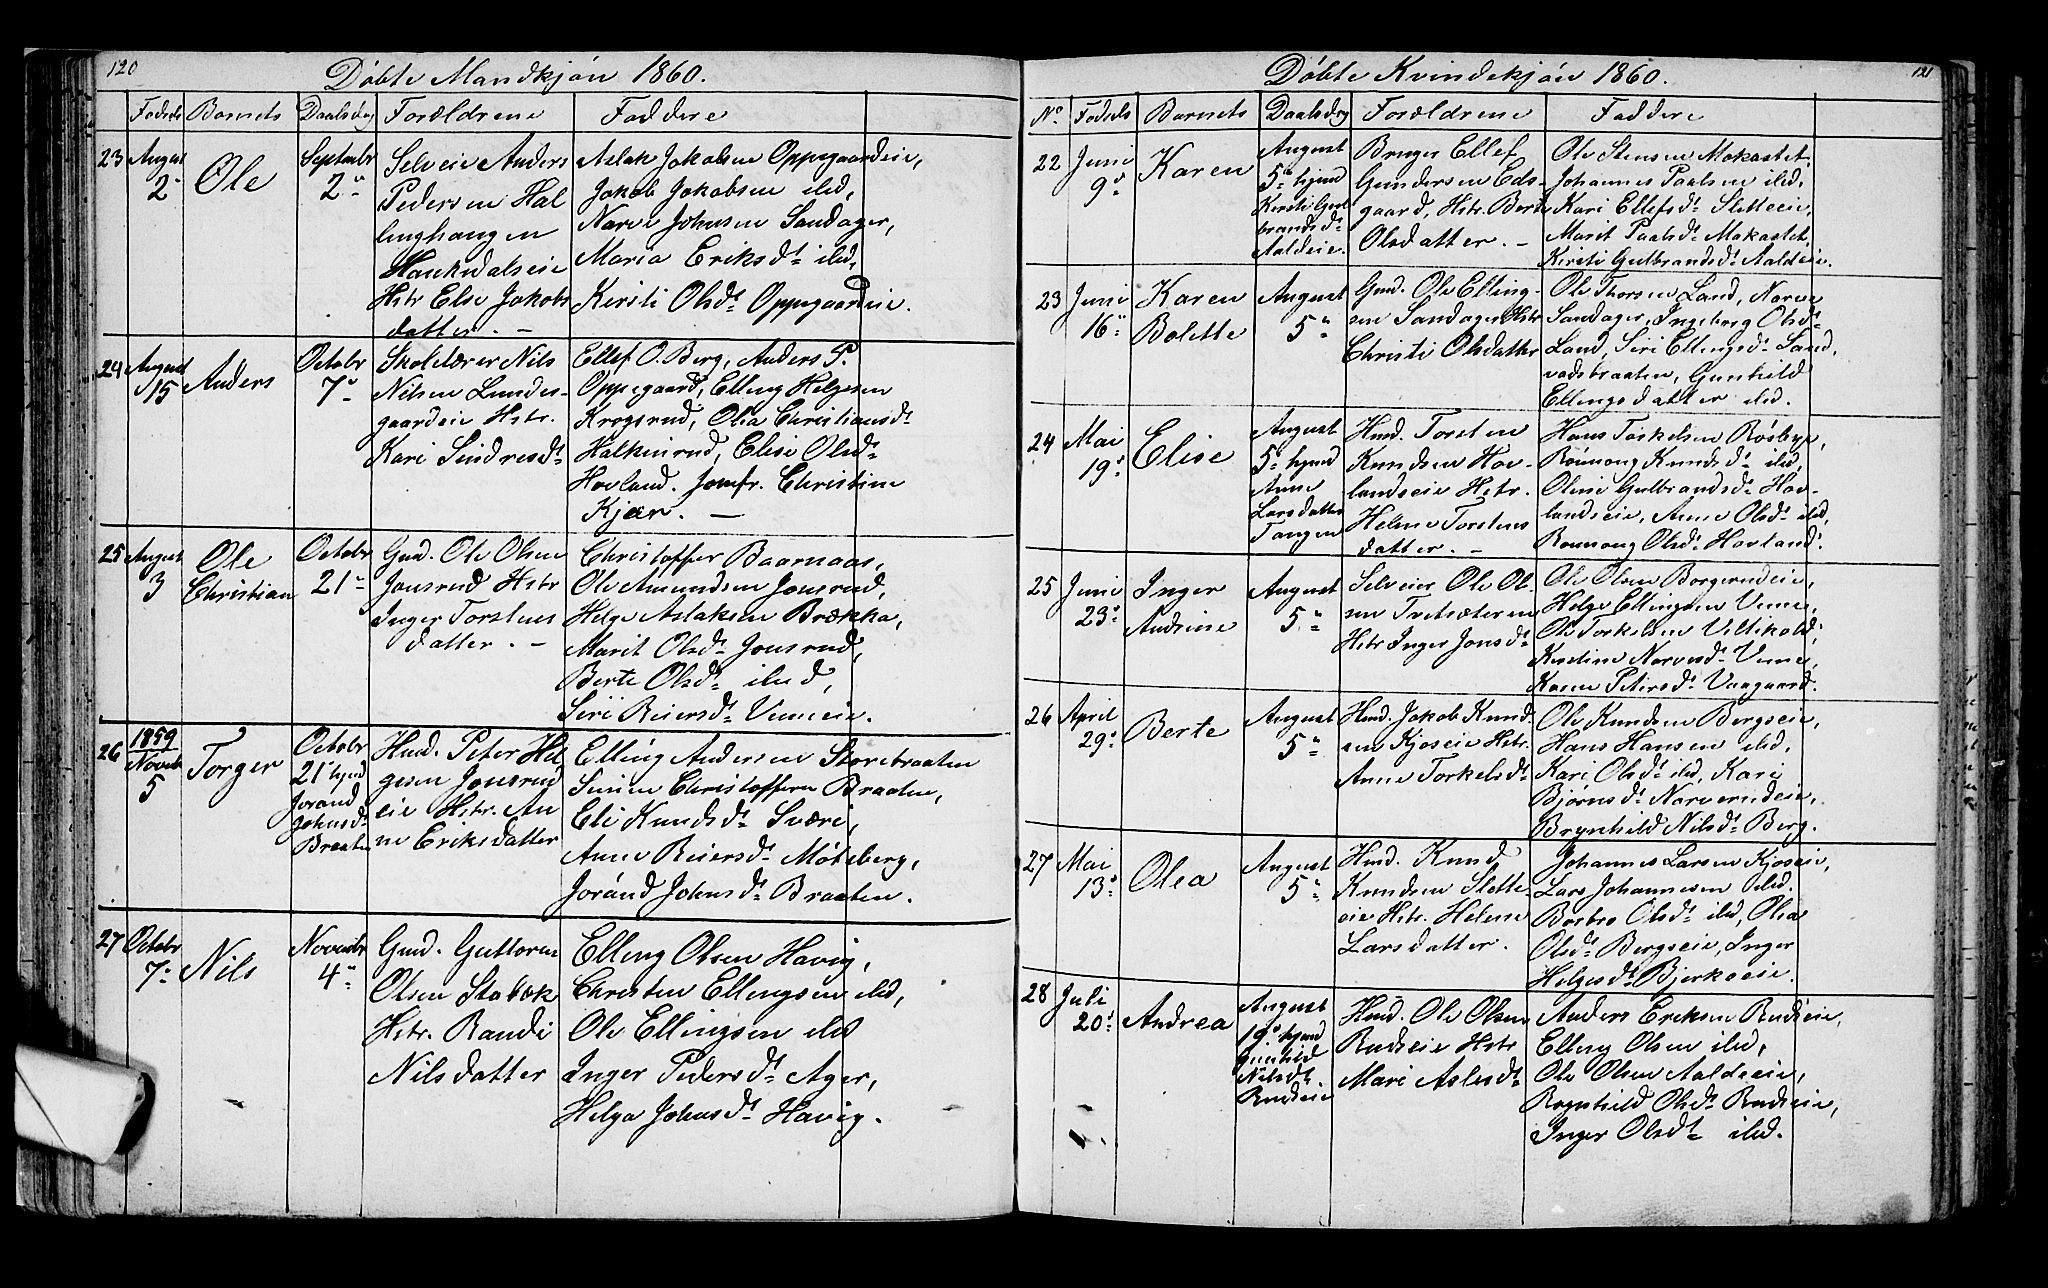 120
Døbte Mandkjøn 1860.
Fødsels Barnets Daabsdag Forældrene Faddere
23 August 2. Ole Septembr 2.
Selveie Anders
Pedersen Hal
linghangen
Haukedalseie
Hstr Else Jakobs
datter. –
Aslak Jakobsen Oppegaardeie,
Jakob Jakobsen ibid,
Narve Johnsen Sandager,
Maria Eriksdt. ibid,
Kersti Olsdt. Oppegaardeie.
24 August 15 Anders Octobr 7.
Skolelærer Nils
Nilsen Lundes-
gaardeie Hstr.
Kari Sindresdt.
Ellef O. Berg, Anders P.
Oppegaard, Elling Helgesen
Krogsrud, Olea Christiansdt.
Halkinrud, Elise Olsdt.
Hovland. Jomfr. Christine
Kjær. –
25 August 3 Ole Christian Octobr 21.
Gmd. Ole Olsen
Jonsrud Hstr
Inger Torstens
datter. –
Christoffer Baarnaas,
Ole Amundsen Jonsrud,
Helge Aslaksen Brækka,
Marit Olsdt. Jonsrud,
Berte Olsdt. ibid,
Siri Reiersdt. Vemeie.
26 1859 Novbr 5 Torger
Octobr
21. hjmd
Jorand
Johnsdt.
Braaten
Hmd. Peter Hel
gesen Jonsrud
eie Hstr. An
ne Eriksdatter
Elling Andersen Storebraaten
Simen Christoffersen Braaten,
Eli Knudsdt. Sværi,
Anne Reiersdt. Møtsberg,
Jorand Johnsdt. Braaten.
27 Octobr 7. Nils Novembr 4.
Gmd. Guttorm
Olsen Stabæk
Hstr. Randi
Nilsdatter
Elling Olsen Havig,
Christen Ellingsen ibid,
Ole Ellingsen ibid
Inger Pedersdt. Ager,
Helga Johnsdt. Havig.
121
Døbte Kvindekjøn 1860.
No. Fødsels Barnets Daabsdag Forældrene Faddere
22 Juni 9. Karen
August
5. hjmd
Kersti Gul
brandsdt.
Aaldeie.
Bruger Ellef
Gundersen Eds-
gaard, Hstr. Berte
Olsdatter. –
Ole Stensen Mokastet,
Johannes Paalsen ibid,
Kari Ellefsdt. Sletteeie,
Marit Paalsdt. Mokastet,
Kersti Gulbrandsdt. Aaldeie.
23 Juni 16. Karen Bolette August 5.
Gmd. Ole Elling-
sen Sandager Hstr
Christi Olsdatter
Ole Thorsen Land, Narve
Sandager, Ingeborg Olsdt.
Land, Siri Ellingsdt. Sand,
vadsbraaten, Gunhild
Ellingsdatter ibid.
24 Mai 19. Elise
August
5. hjmd
Anne
Larsdatter
Tangen
Hmd. Torsten
Knudsen Hov-
landseie Hstr.
Helene Torstens
datter. –
Hans Torkelsen Røsbye,
Rønnoug Knudsdt. ibid,
Oline Gulbrandsdt. Hov-
landseie, Anne Olsdt. ibid,
Rønnoug Olsdt. Hovland.
25 Juni 23. Inger Andrine August 5.
Selveier Ole Ol-
sen Tretsæteren
Hstr Inger Jonsdt.
Ole Olsen Borgerudeie,
Helge Ellingsen Veme,
Ole Torkelsen Veltikold,
Kirstine Narvesdt. Veme,
Karen Petersdt. Vaagaard.
26 April 29. Berte August 5.
Hmd. Jakob Knud-
sen Kjoseie Hstr.
Anne Torkelsdt.
Ole Knudsen Bergseie,
Hans Hansen ibid,
Kari Olsdt. ibid, Kari
Bjørnsdt. Narverudeie,
Brynhild Nilsdt. Berg.
27 Mai 13. Olea August 5.
Hmd. Knud
Knudsen Slette-
eie Hstr. Helene
Larsdatter.
Johannes Larsen Kjoseie,
Lars Johannesen ibid.
Barbro Olsdt. ibid, Olea
Olsdt. Bergseie, Inger
Helgesdt. Bjerkeeie.
28 Juli 20. Andrea
August
19. hjmd
Gunhild
Nilsdt.
Rudseie
Hmd. Ole Olsen
Rudseie Hstr
Mari Aslesdt.
Anders Eriksen Rudseie,
Elling Olsen ibid,
Ole Olsen Aaldseie,
Rognhild Olsdt. Rudseie,
Inger Olsdt. ibid.